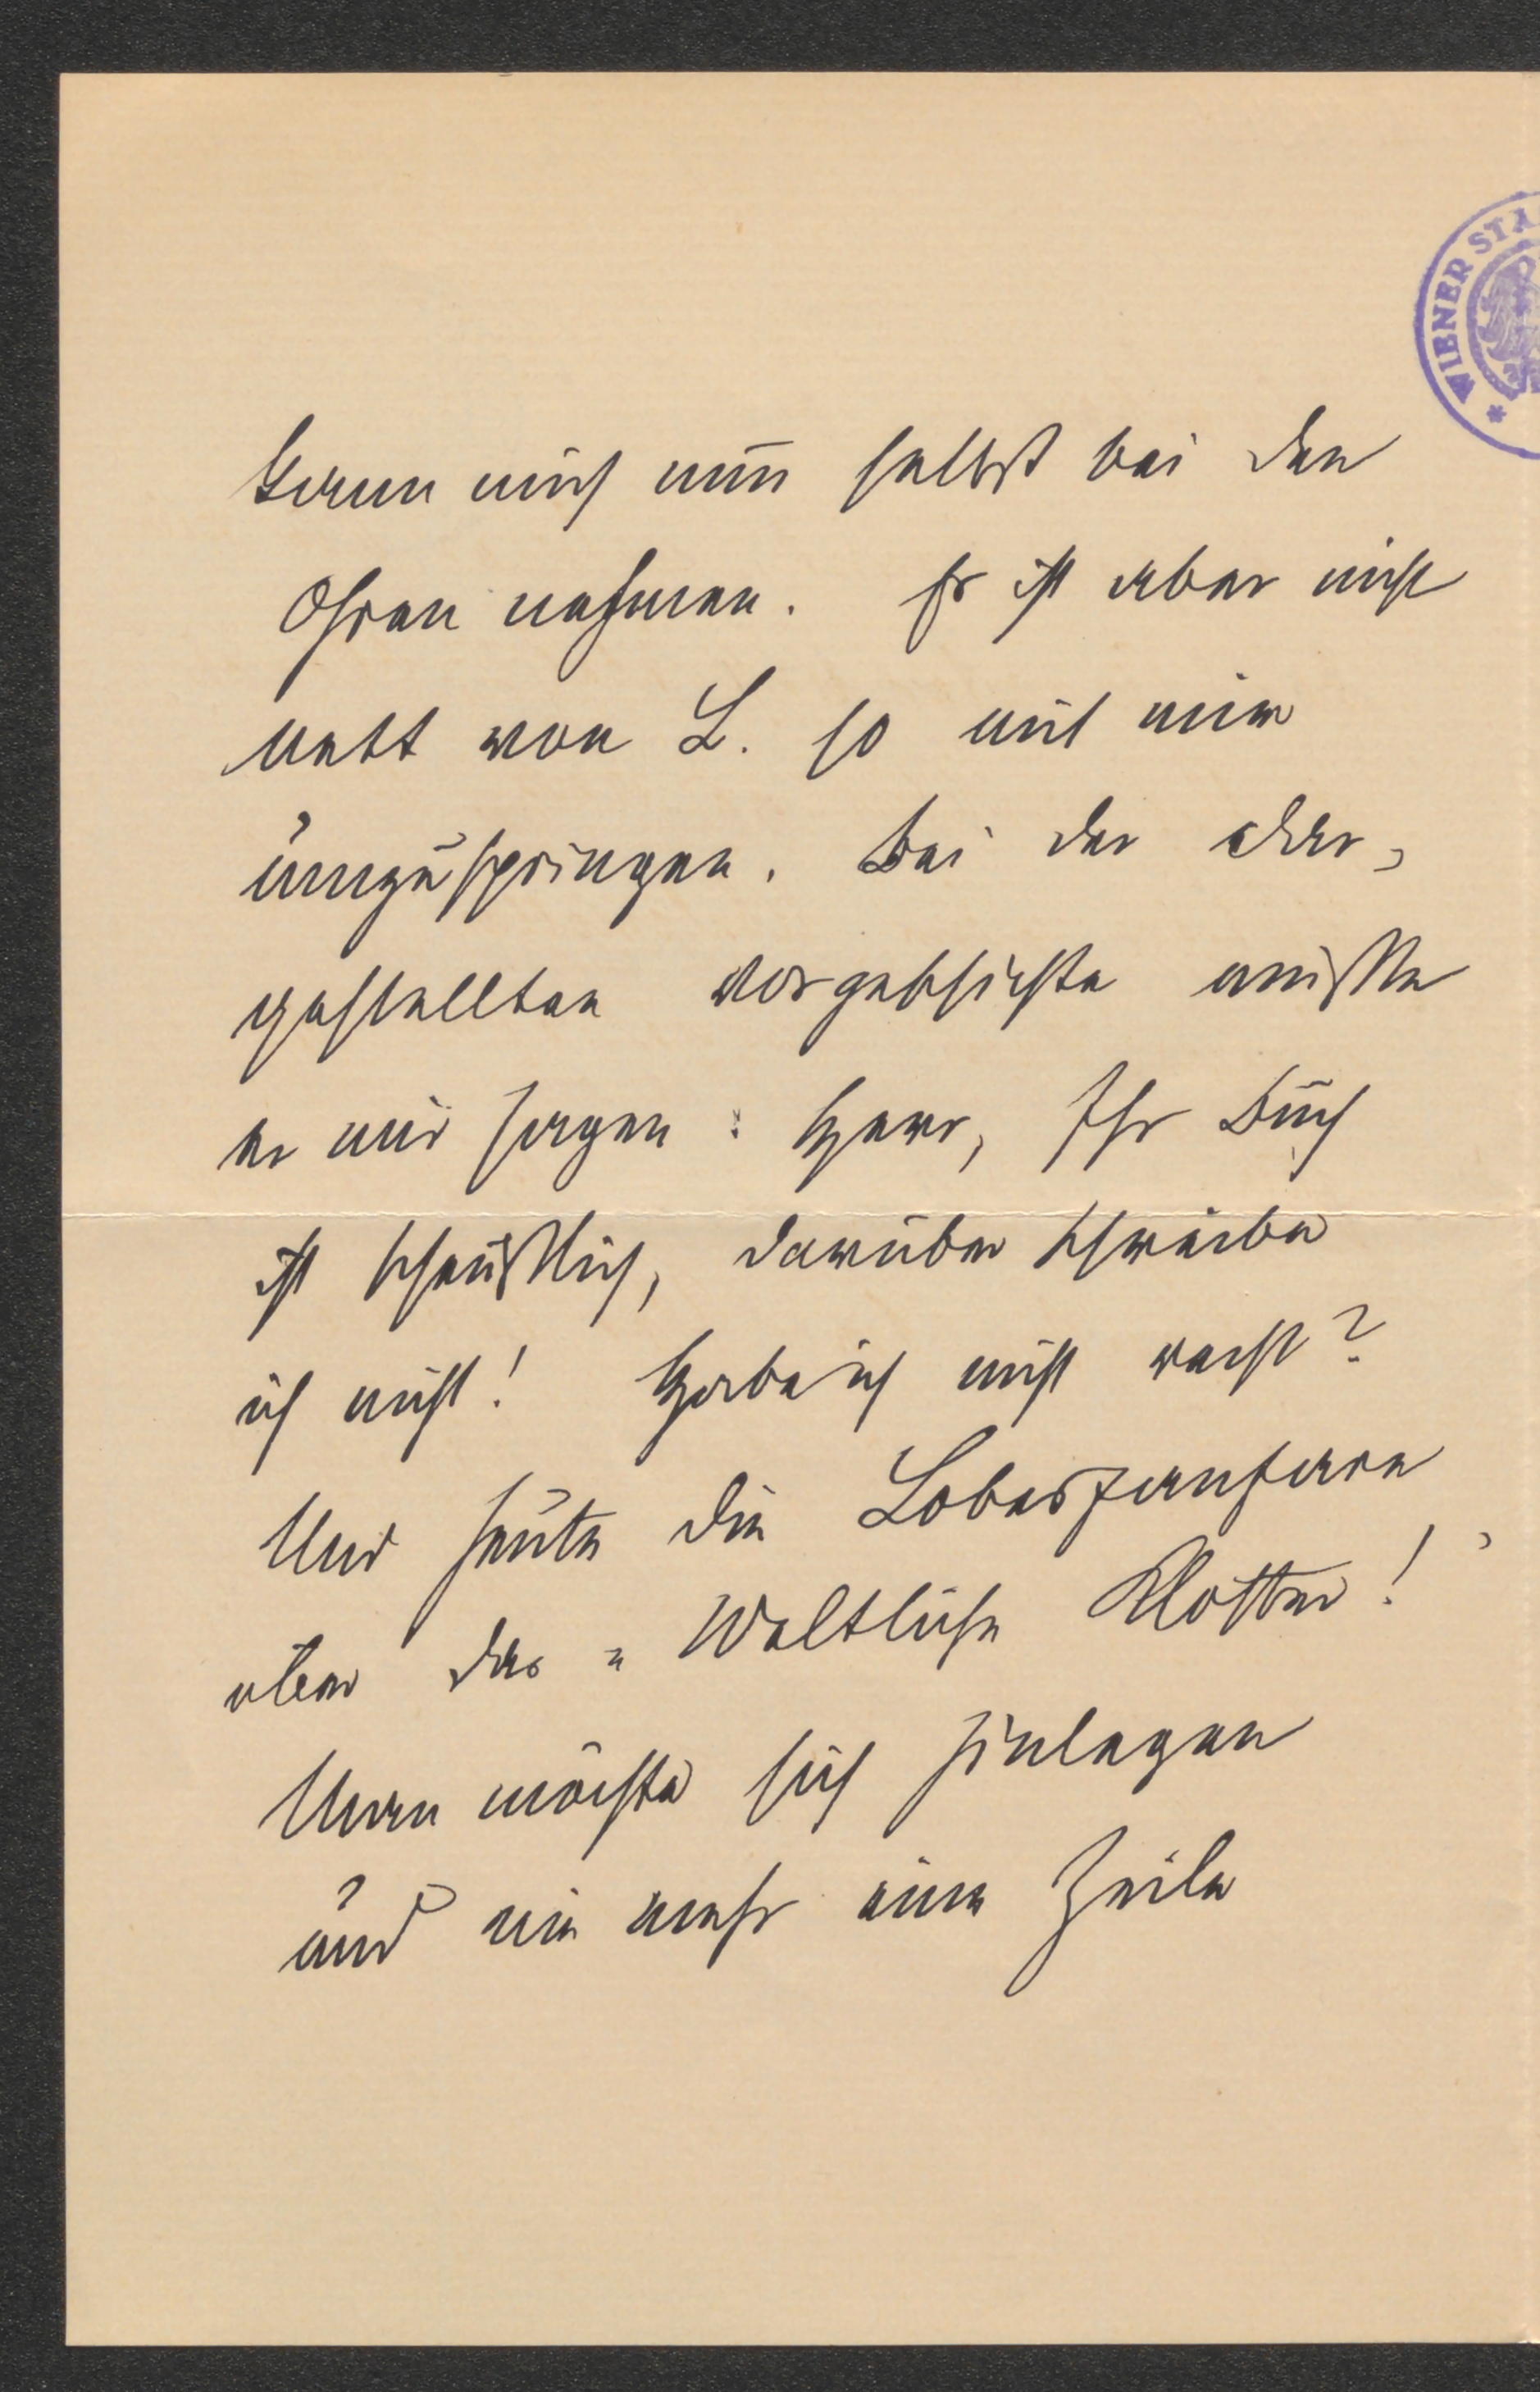 kann mich nun selbst bei den
Ohren nehmen. Es ist aber nicht
nett von L. so mit mir
umzuspringen. Bei der dar-
gestellten Vorgeschichte müßte
er mir sagen: Herr, Ihr Buch
ist scheußlich, darüber schreibe
ich nicht! Habe ich nicht recht?
Und heute die Lobesfanfare
über das „Weltliche Kloster!“
Man möchte sich hinlegen
und nie mehr eine Zeile
WIENER STA